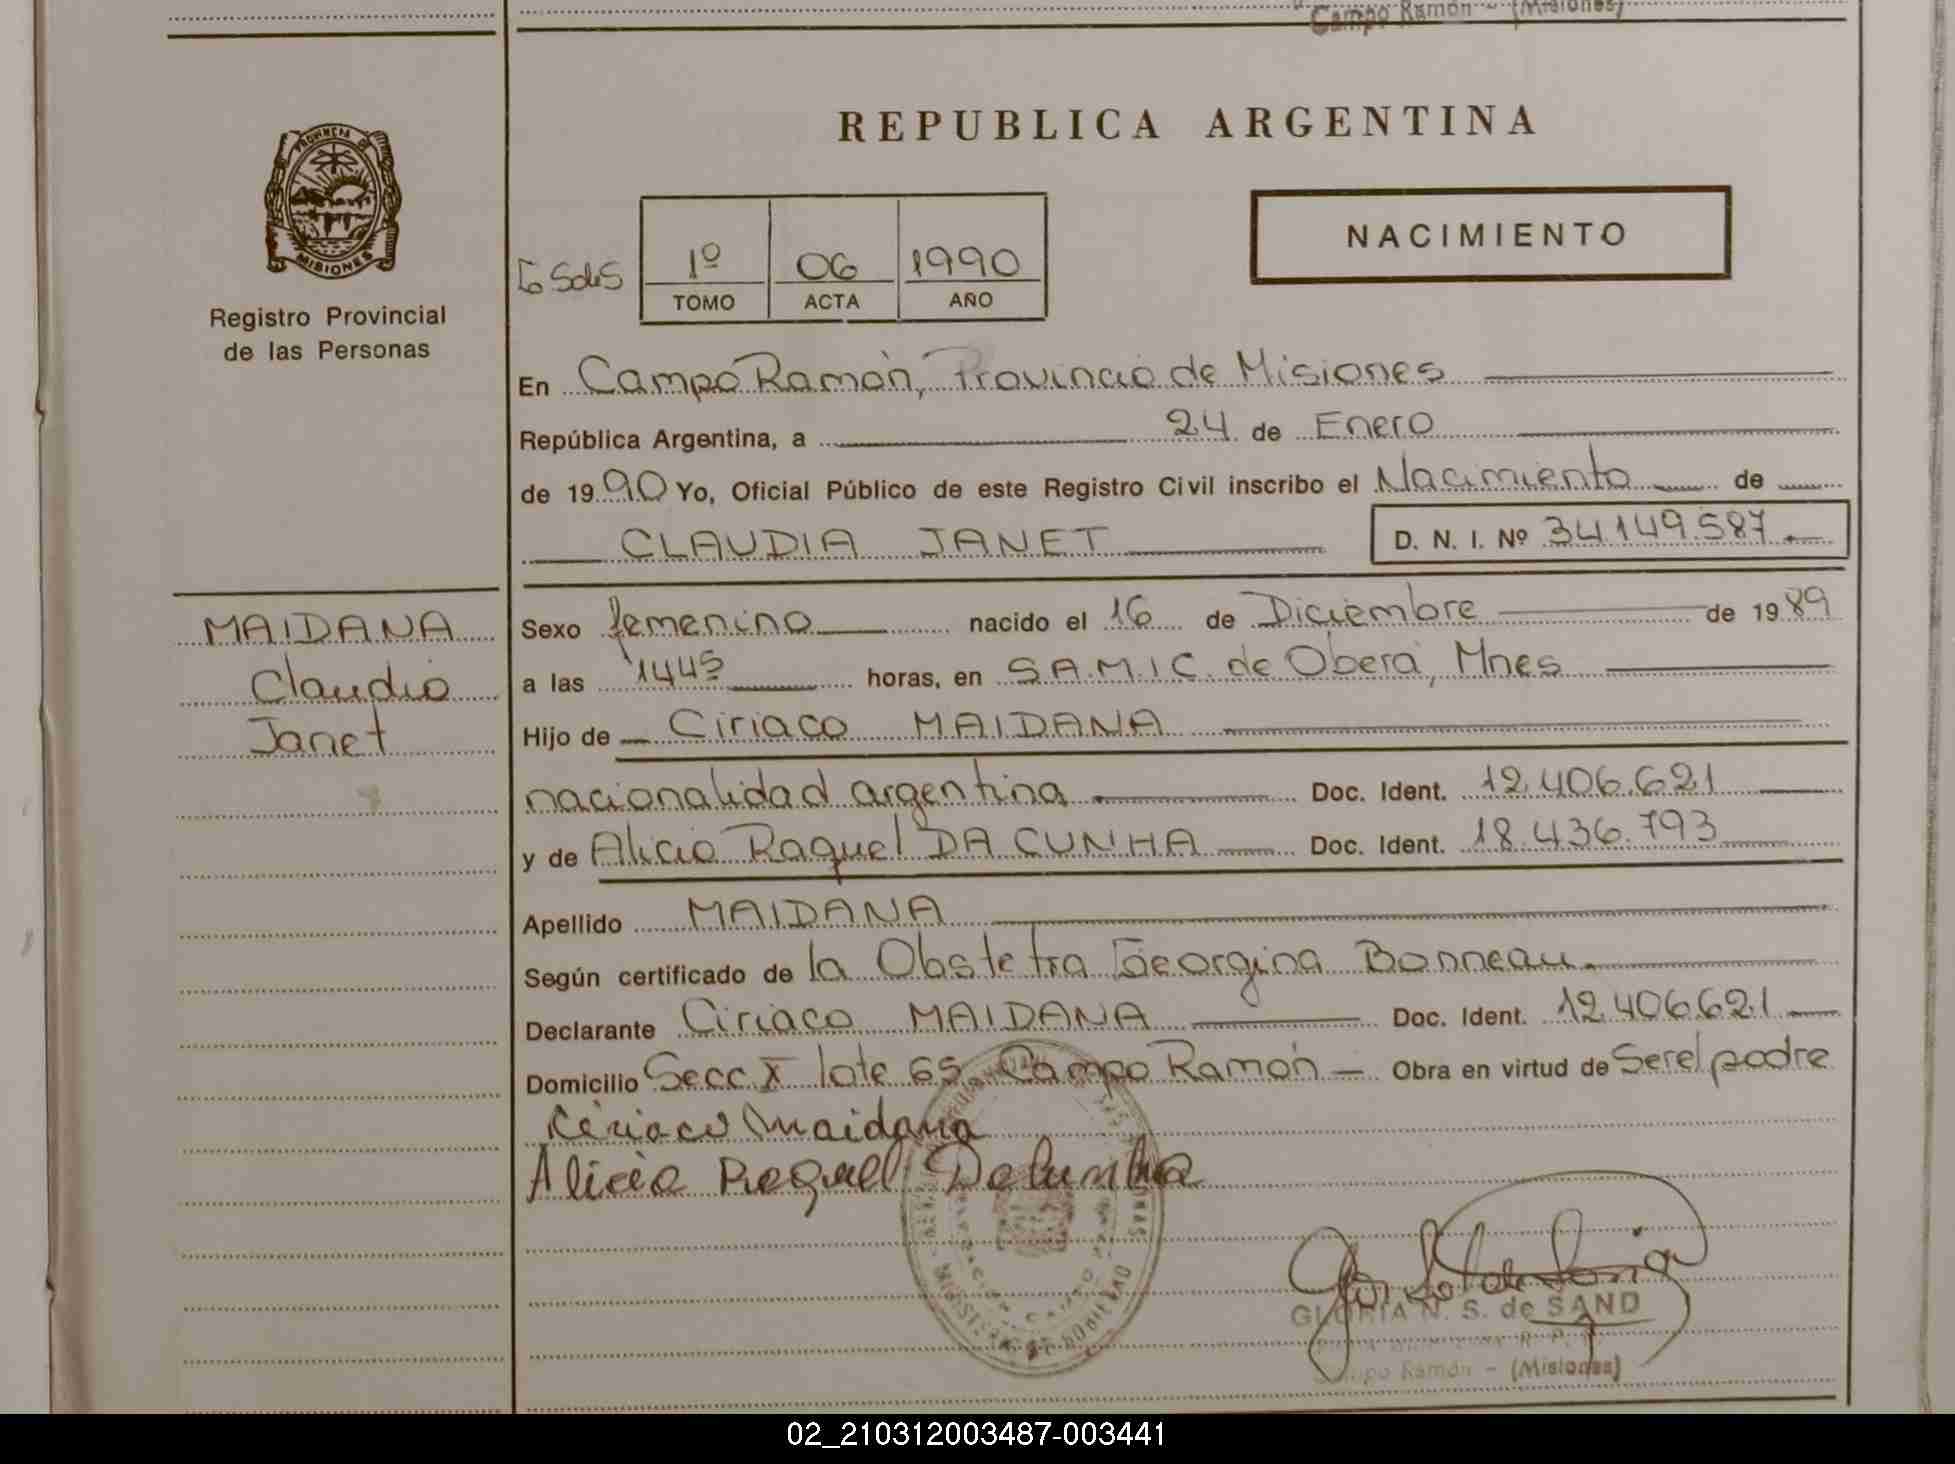 Campo Ramón - (Misiones)
PROVINCIA DE
MISIONES
Registro Provincial
de las Personas
REPUBLICA ARGENTINA
NACIMIENTO
1º 06 1990
TOMO ACTA AÑO
En Campo Ramón, Provincia de Misiones
República Argentina, a 24 de Enero
de 1990 Yo, Oficial Público de este Registro Civil inscribo el Nacimiento de
CLAUDIA JANET D. N. I. Nº 34.149.587
MAIDANA
Claudia
Janet
Sexo femenino nacido el 16 de Diciembre de 1989
a las 1445 horas, en S.A.M.I.C. de Oberá, Mnes
Hijo de Ciriaco MAIDANA
nacionalidad argentina Doc. Ident. 12.406.621
y de Alicia Raquel DA CUNHA Doc. Ident. 18.436.793
Apellido MAIDANA
Según certificado de la Obstetra Georgina Bonneau.
Declarante Ciriaco MAIDANA Doc. Ident. 12.406.621
Domicilio Secc X lote 65 Campo Ramón Obra en virtud de Ser el padre
Ciriaco Maidana
Alicia Raquel Da Cunha
GLORIA N. S. de SAND
Campo Ramón - (Misiones)
02_210312003487-003441